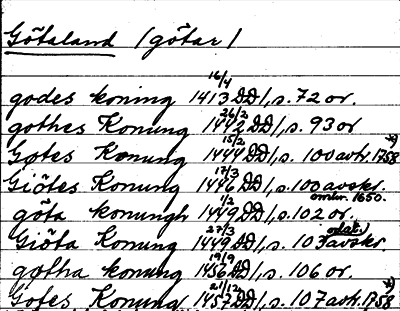 Götaland (götar)
godes koning 16/4 1413 DD 1, s. 72 or.
gothes Konung 26/2 1442 DD 1, s. 93 or
Gotes Konung 15/2 1444 DD 1, s. 100 avskr. 1758 *)
Giötes Konung 17/3 1446 DD 1, s. 100 avskr. omkr. 1650.
göta konungh 1/2 1449 DD 1, s. 102 or.
Giöta Konung 27/3 1449 DD 1, s. 103 odat. avskr.
gotha konung 19/9 1456 DD 1, s. 106 or.
Gotes Konung 21/12 1457 DD 1, s. 107 avskr. 1758 *)